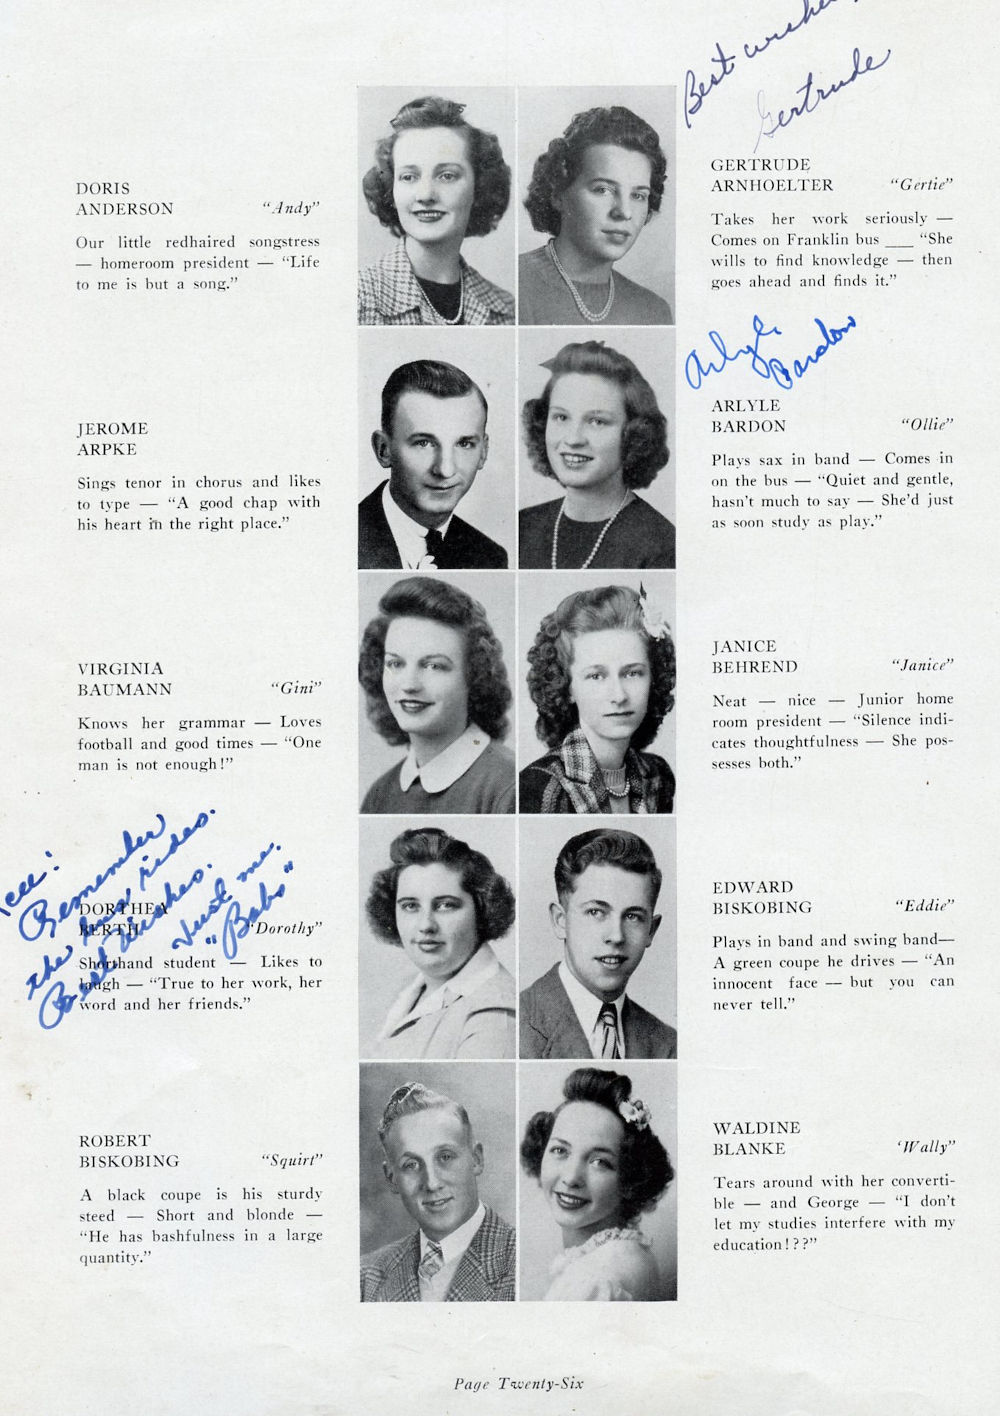 Best wishes
Gertrude
DORIS
ANDERSON "Andy"
Our little redhaired songstress
— homeroom president — "Life
to me is but a song."
GERTRUDE
ARNHOELTER "Gertie"
Takes her work seriously —
Comes on Franklin bus ___ "She
wills to find knowledge — then
goes ahead and finds it."
JEROME
ARPKE
Sings tenor in chorus and likes
to type — "A good chap with
his heart in the right place."
Arlyle
Bardon
ARLYLE
BARDON "Ollie"
Plays sax in band — Comes in
on the bus — "Quiet and gentle,
hasn't much to say — She'd just
as soon study as play."
VIRGINIA
BAUMANN "Gini"
Knows her grammar — Loves
football and good times — "One
man is not enough!"
JANICE
BEHREND "Janice"
Neat — nice — Junior home
room president — "Silence indi-
cates thoughtfulness — She pos-
sesses both."
Remember
the bus rides.
Best Wishes.
Just me.
"Babs"
DORTHEA
BERTH "Dorothy"
Shorthand student — Likes to
laugh — "True to her work, her
word and her friends."
EDWARD
BISKOBING "Eddie"
Plays in band and swing band—
A green coupe he drives — "An
innocent face — but you can
never tell."
ROBERT
BISKOBING "Squirt"
A black coupe is his sturdy
steed — Short and blonde —
"He has bashfulness in a large
quantity."
WALDINE
BLANKE 'Wally"
Tears around with her converti-
ble — and George — "I don't
let my studies interfere with my
education!??"
Page Twenty-Six